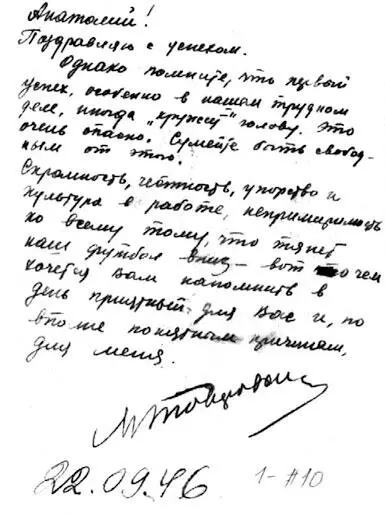 Анатолий!
Поздравляю с успехом.
Однако помните, что первый
успех, особенно в нашем трудном
деле, иногда "кружит" голову. Это
очень опасно. Сумейте быть свобод-
ным от этого.
Скромность, честность, упорство и
культура в работе, непримиримость
ко всему тому, что тянет
наш футбол вниз - вот о чем
хочется Вам напомнить в
день приятный для Вас и, по
вполне понятным причинам,
для меня.
22.09.46 1-#10